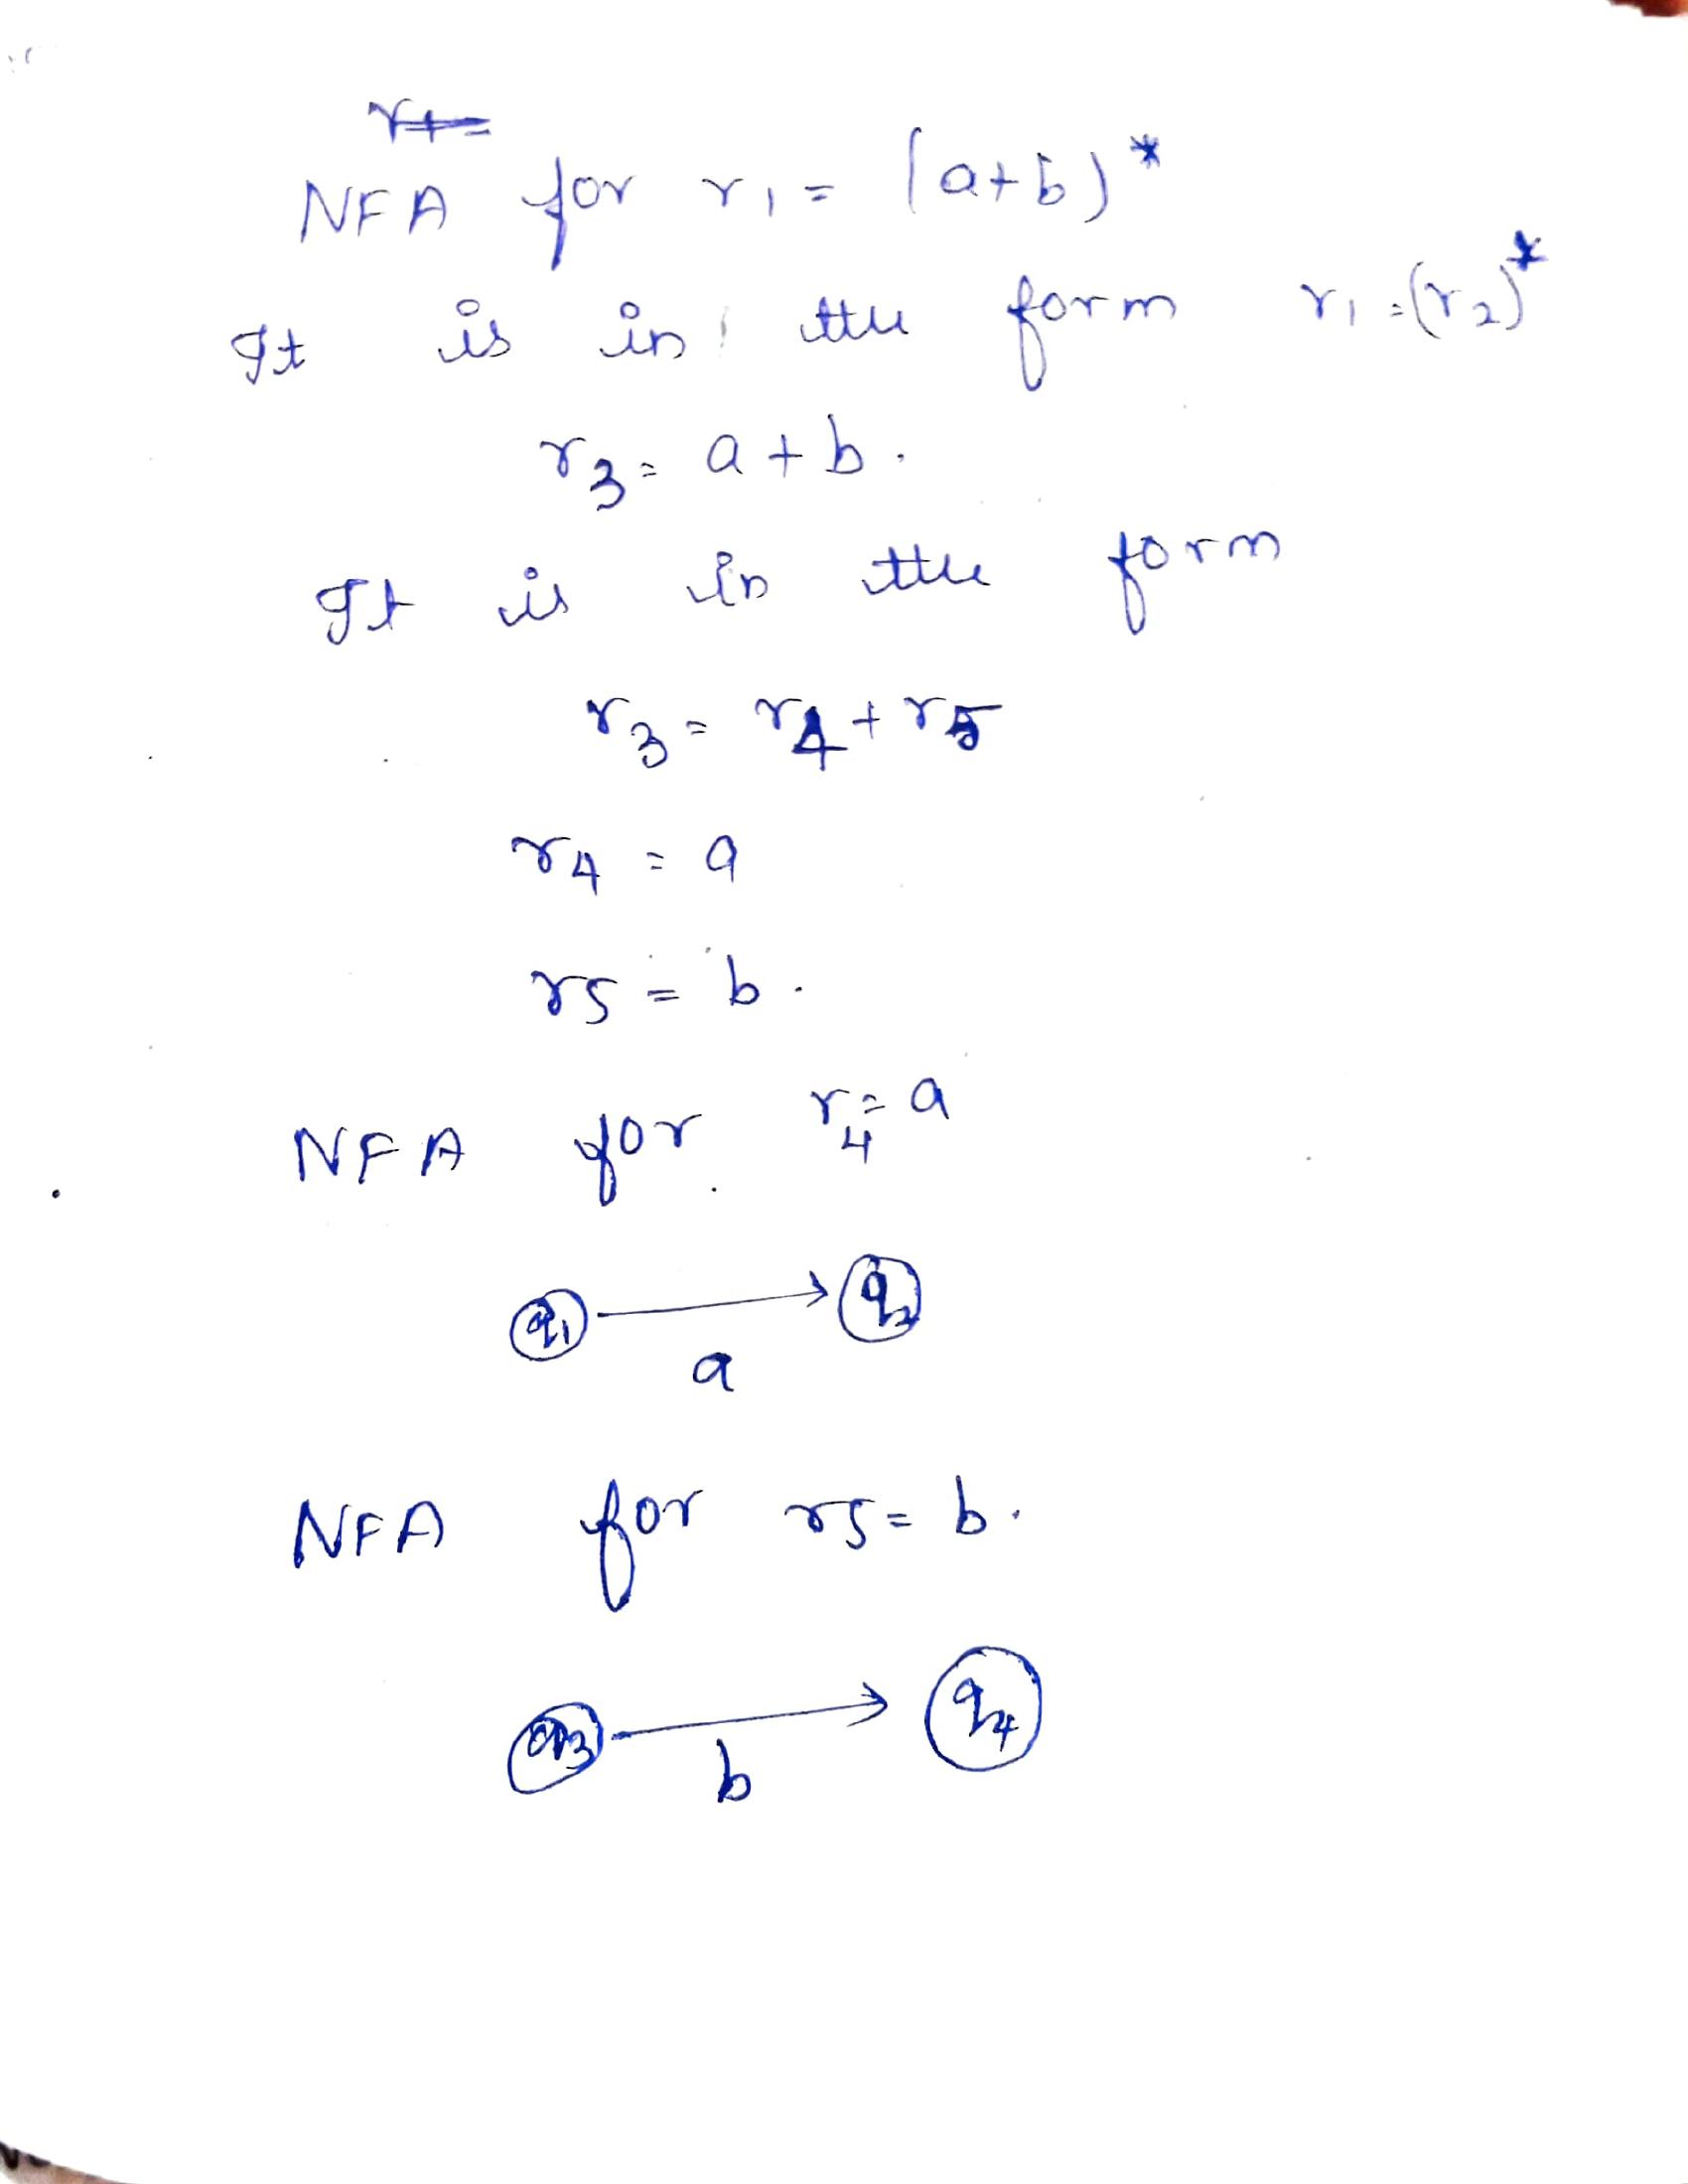 NFA for r1 = (a+b)*
It is in the form r1 = (r2)*
r3 = a+b.
It is in the form
r3 = r4 + r5
r4 = a
r5 = b.
NFA for r4 = a
q1 q2
a
NFA for r5 = b.
q3 q4
b